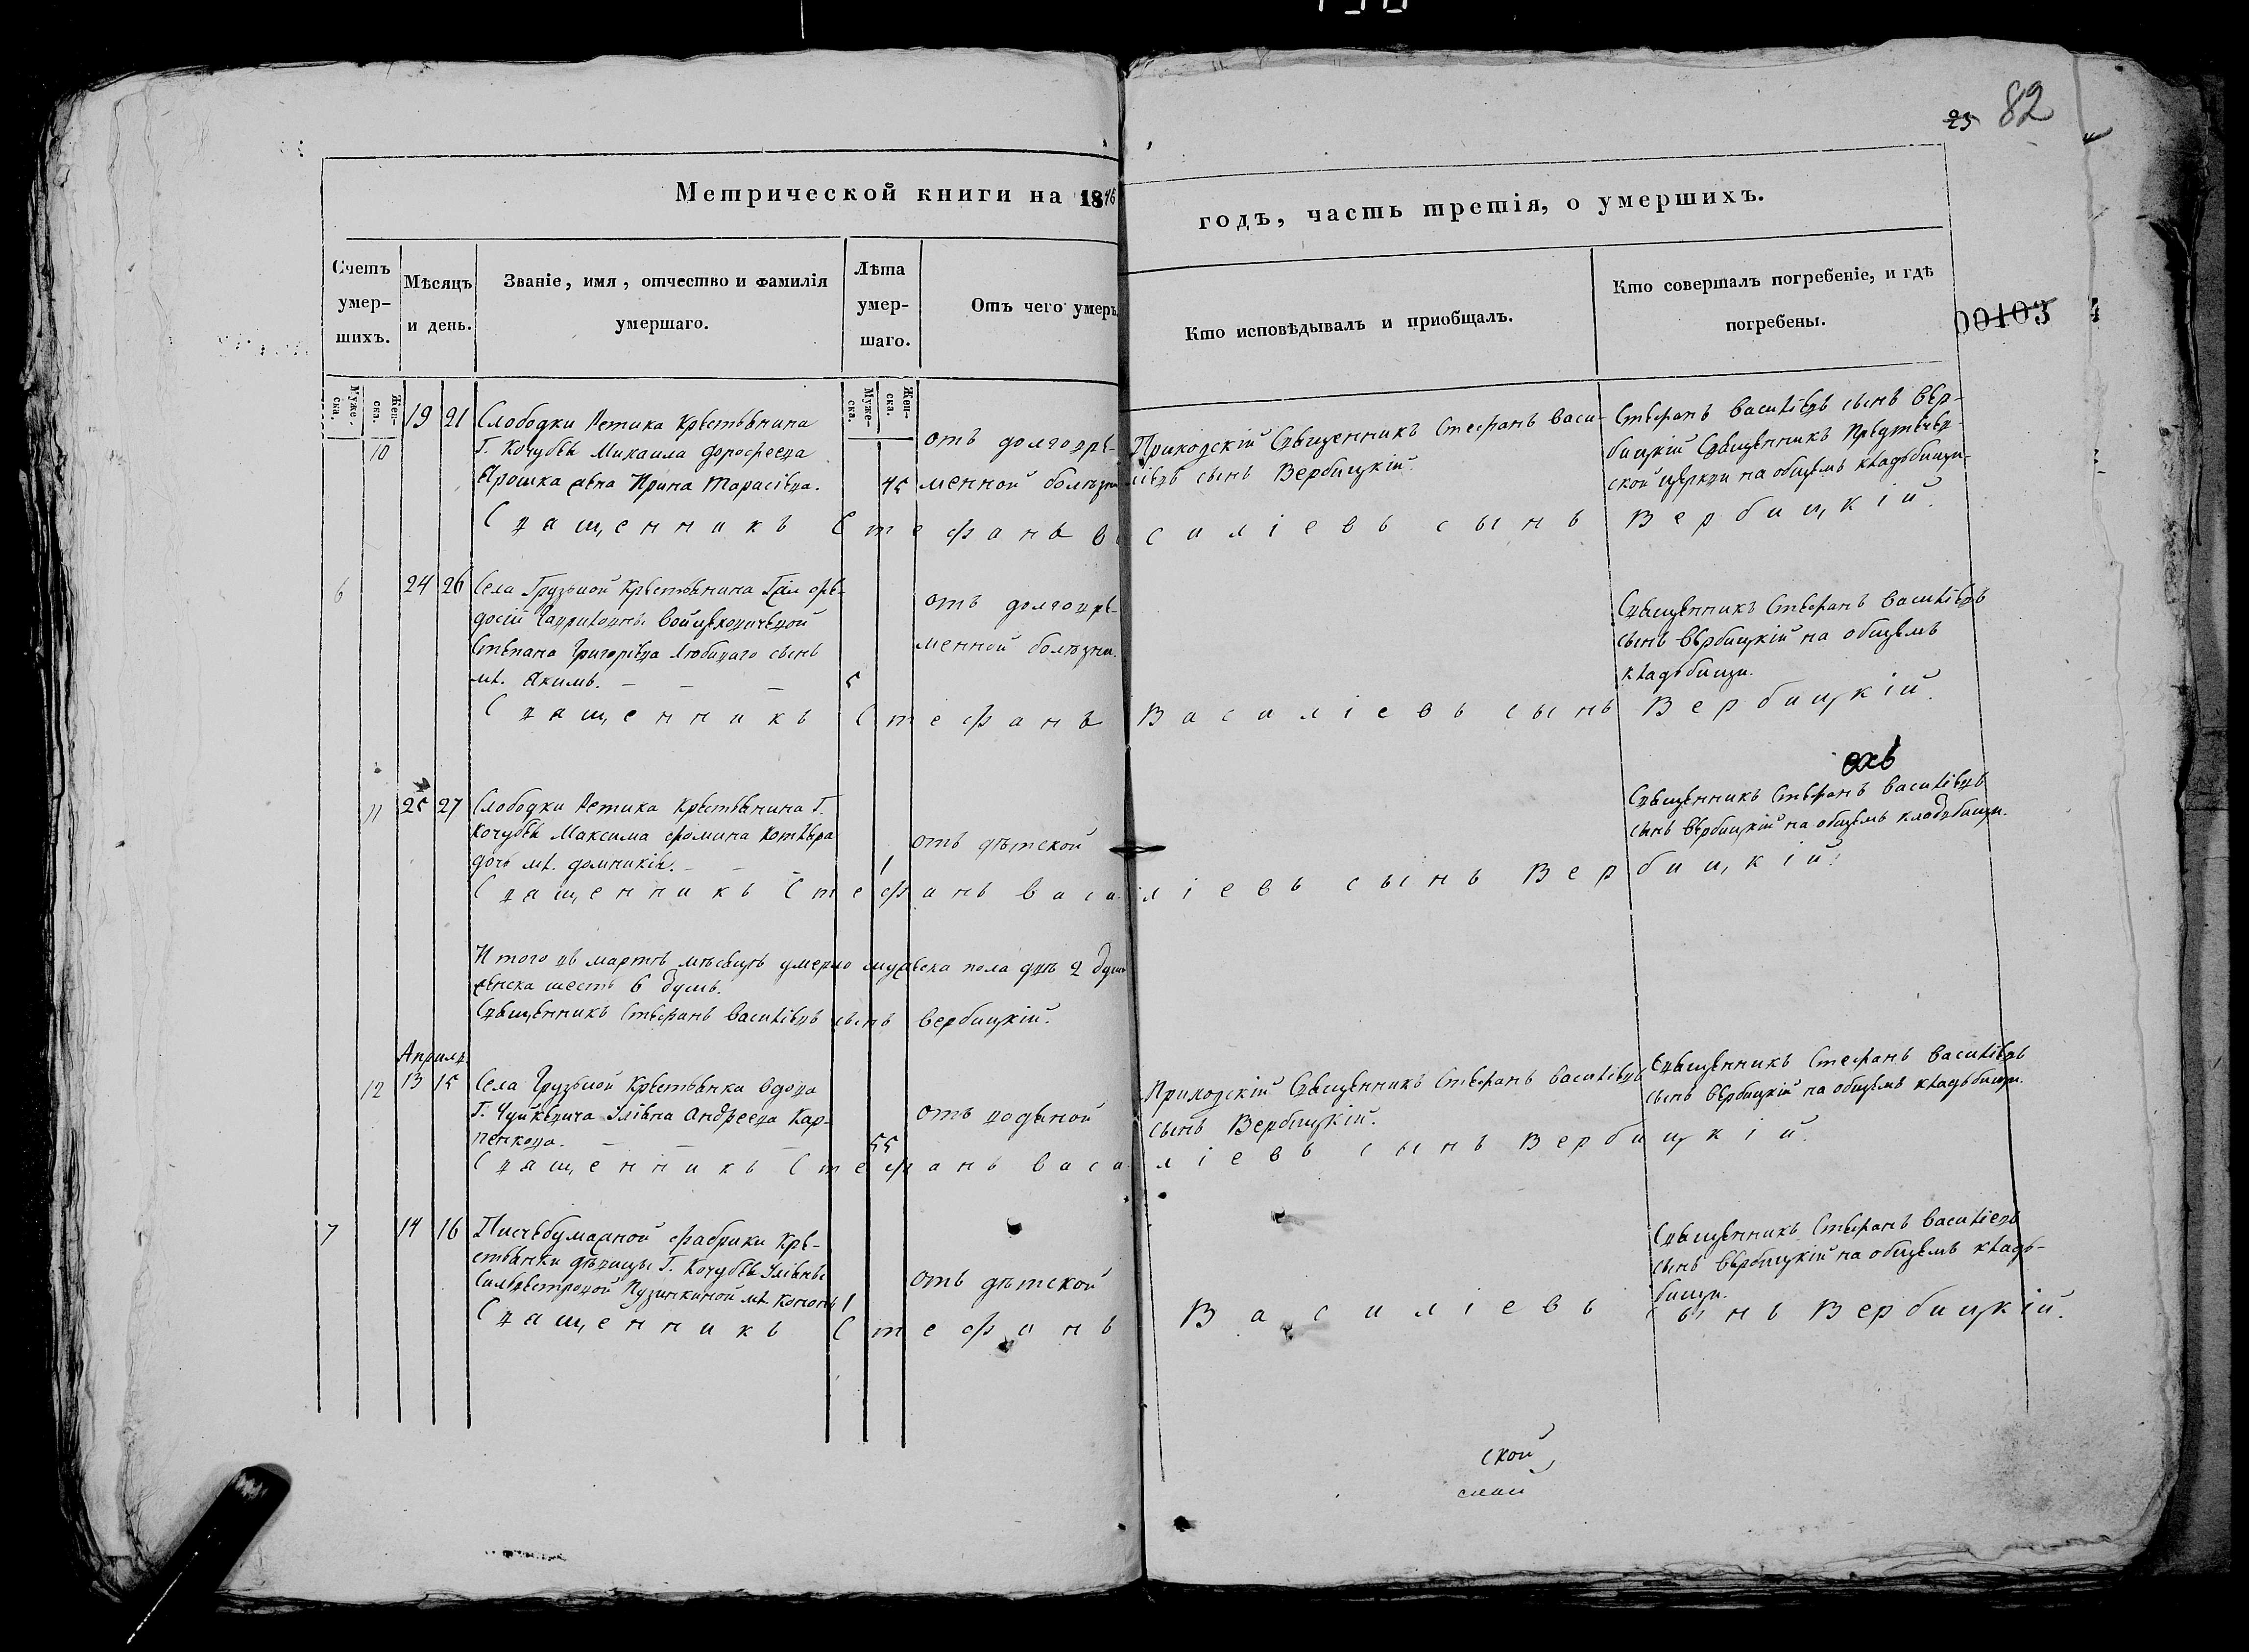 82
25
Метрической книги на 1846
годъ, часть третія, о умершихъ.
00103
Счетъ умер-
шихъ.
Мѣсяцъ
и день.
Званіе, имя, отчество и фамилія
умершаго.
Лѣта
умер-
шаго.
Отъ чего умеръ
Кто исповѣдывалъ и приобщалъ.
Кто совершалъ погребеніе, и гдѣ
погребены.
Муже-
ска.
Жен-
ска.
Муже-
ска.
Жен-
ска.
10
19 21
Слободки Кретьянина
Г. Кочубея Михаила Дорофеева
Ярошка жена Ирина Тарасіева.
45
отъ долговре-
менной болѣзни
Приходскій Священникъ Стефанъ Васи-
ліевъ сынъ Вербицкій.
Стефанъ Василіевъ сынъ Вер-
бицкій Священникъ Предтечев-
ской церкви на общемъ кладьбищи
Священникъ Стефанъ Василіевъ сынъ Вербицкій.
6
24 26
Села Грузской Крестьянина Гжи Фео-
досіи Гавриловны Войцеховичевой
Степана Григоріева Любиваго сынъ
мл. Якимъ.
5
отъ долговре-
менной болѣзни.
Священникъ Стефанъ Василіевъ
сынъ Вербицкій на общемъ
кладьбищи.
Священникъ Стефанъ Василіевъ сынъ Вербицкій.
11
25 27
Слободки Крестьянина Г.
Кочубея Максима Фомина
дочь мл. Домникія.
1
отъ дѣтской
Священникъ Стефанъ Василіевъ
сынъ Вербицкій на общемъ кладьбищи.
Священникъ Стефанъ Василіевъ сынъ Вербицкій.
Итого въ мартѣ мѣсяцѣ умерло мужеска пола двѣ 2 души
женска шесть 6 душъ.
Священникъ Стефанъ Василіевъ сынъ Вербицкій.
Апрѣля
12
13 15
Села Грузской Крестьянки вдова
Г. Чуйкевича Уліяна Андреева Кар-
пенкова.
55
отъ водяной
Приходскій Священникъ Стефанъ Василіевъ
сынъ Вербицкій.
Священникъ Стефанъ Василіевъ
сынъ Вербицкій на общемъ кладьбищи.
Священникъ Стефанъ Василіевъ сынъ Вербицкій.
7
14 16
Писчебумажной фабрики Кре-
стьянки дѣвицы Г. Кочубея Уліяны
Сильвестровой Пузинкиной мл. Кононъ
1
отъ дѣтской
Священникъ Стефанъ Василіевъ
сынъ Вербицкій на общемъ кладь-
бищи.
Священникъ Стефанъ Василіевъ сынъ Вербицкій.
ской